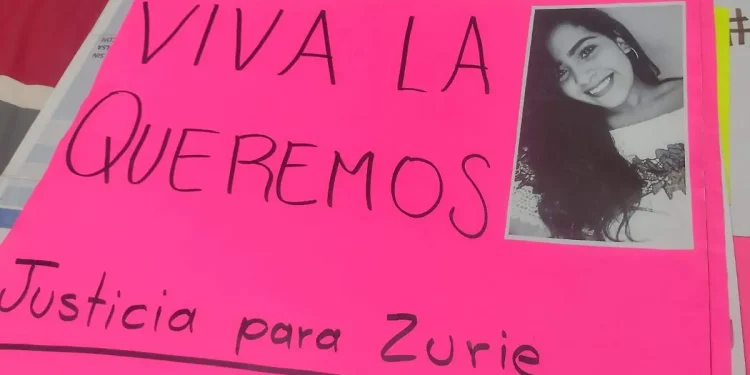 VIVA LA
QUEREMOS
Justicia para Zurie
#